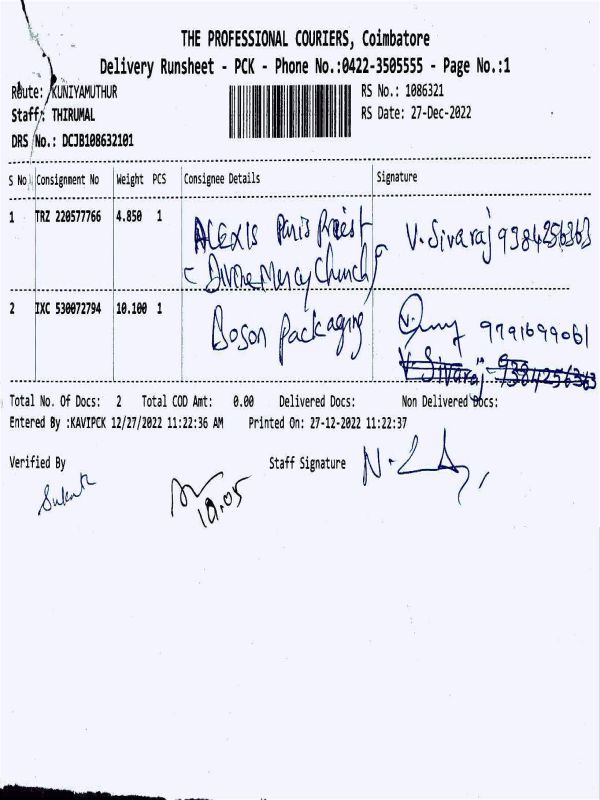 THE PROFESSIONAL COURIERS, Coimbatore
Delivery Runsheet - PCK - Phone No.:0422-3505555 - Page No.:1
Route: KUNIYAMUTHUR
RS No.: 1086321
Staff: THIRUMAL
RS Date: 27-Dec-2022
DRS No.: DCJB108632101
S No Consignment No Weight PCS Consignee Details Signature
1 TRZ 220577766 4.850 1 ALEXIS Paris Priest V. Sivaraj 9384256363
( Divine Mercy Church )
2 IXC 530072794 10.100 1 Boson Packaging 9791699061
V. Sivaraj 9384256363
Total No. Of Docs: 2 Total COD Amt: 0.00 Delivered Docs: Non Delivered Docs:
Entered By :KAVIPCK 12/27/2022 11:22:36 AM Printed On: 27-12-2022 11:22:37
Verified By Staff Signature
19.05